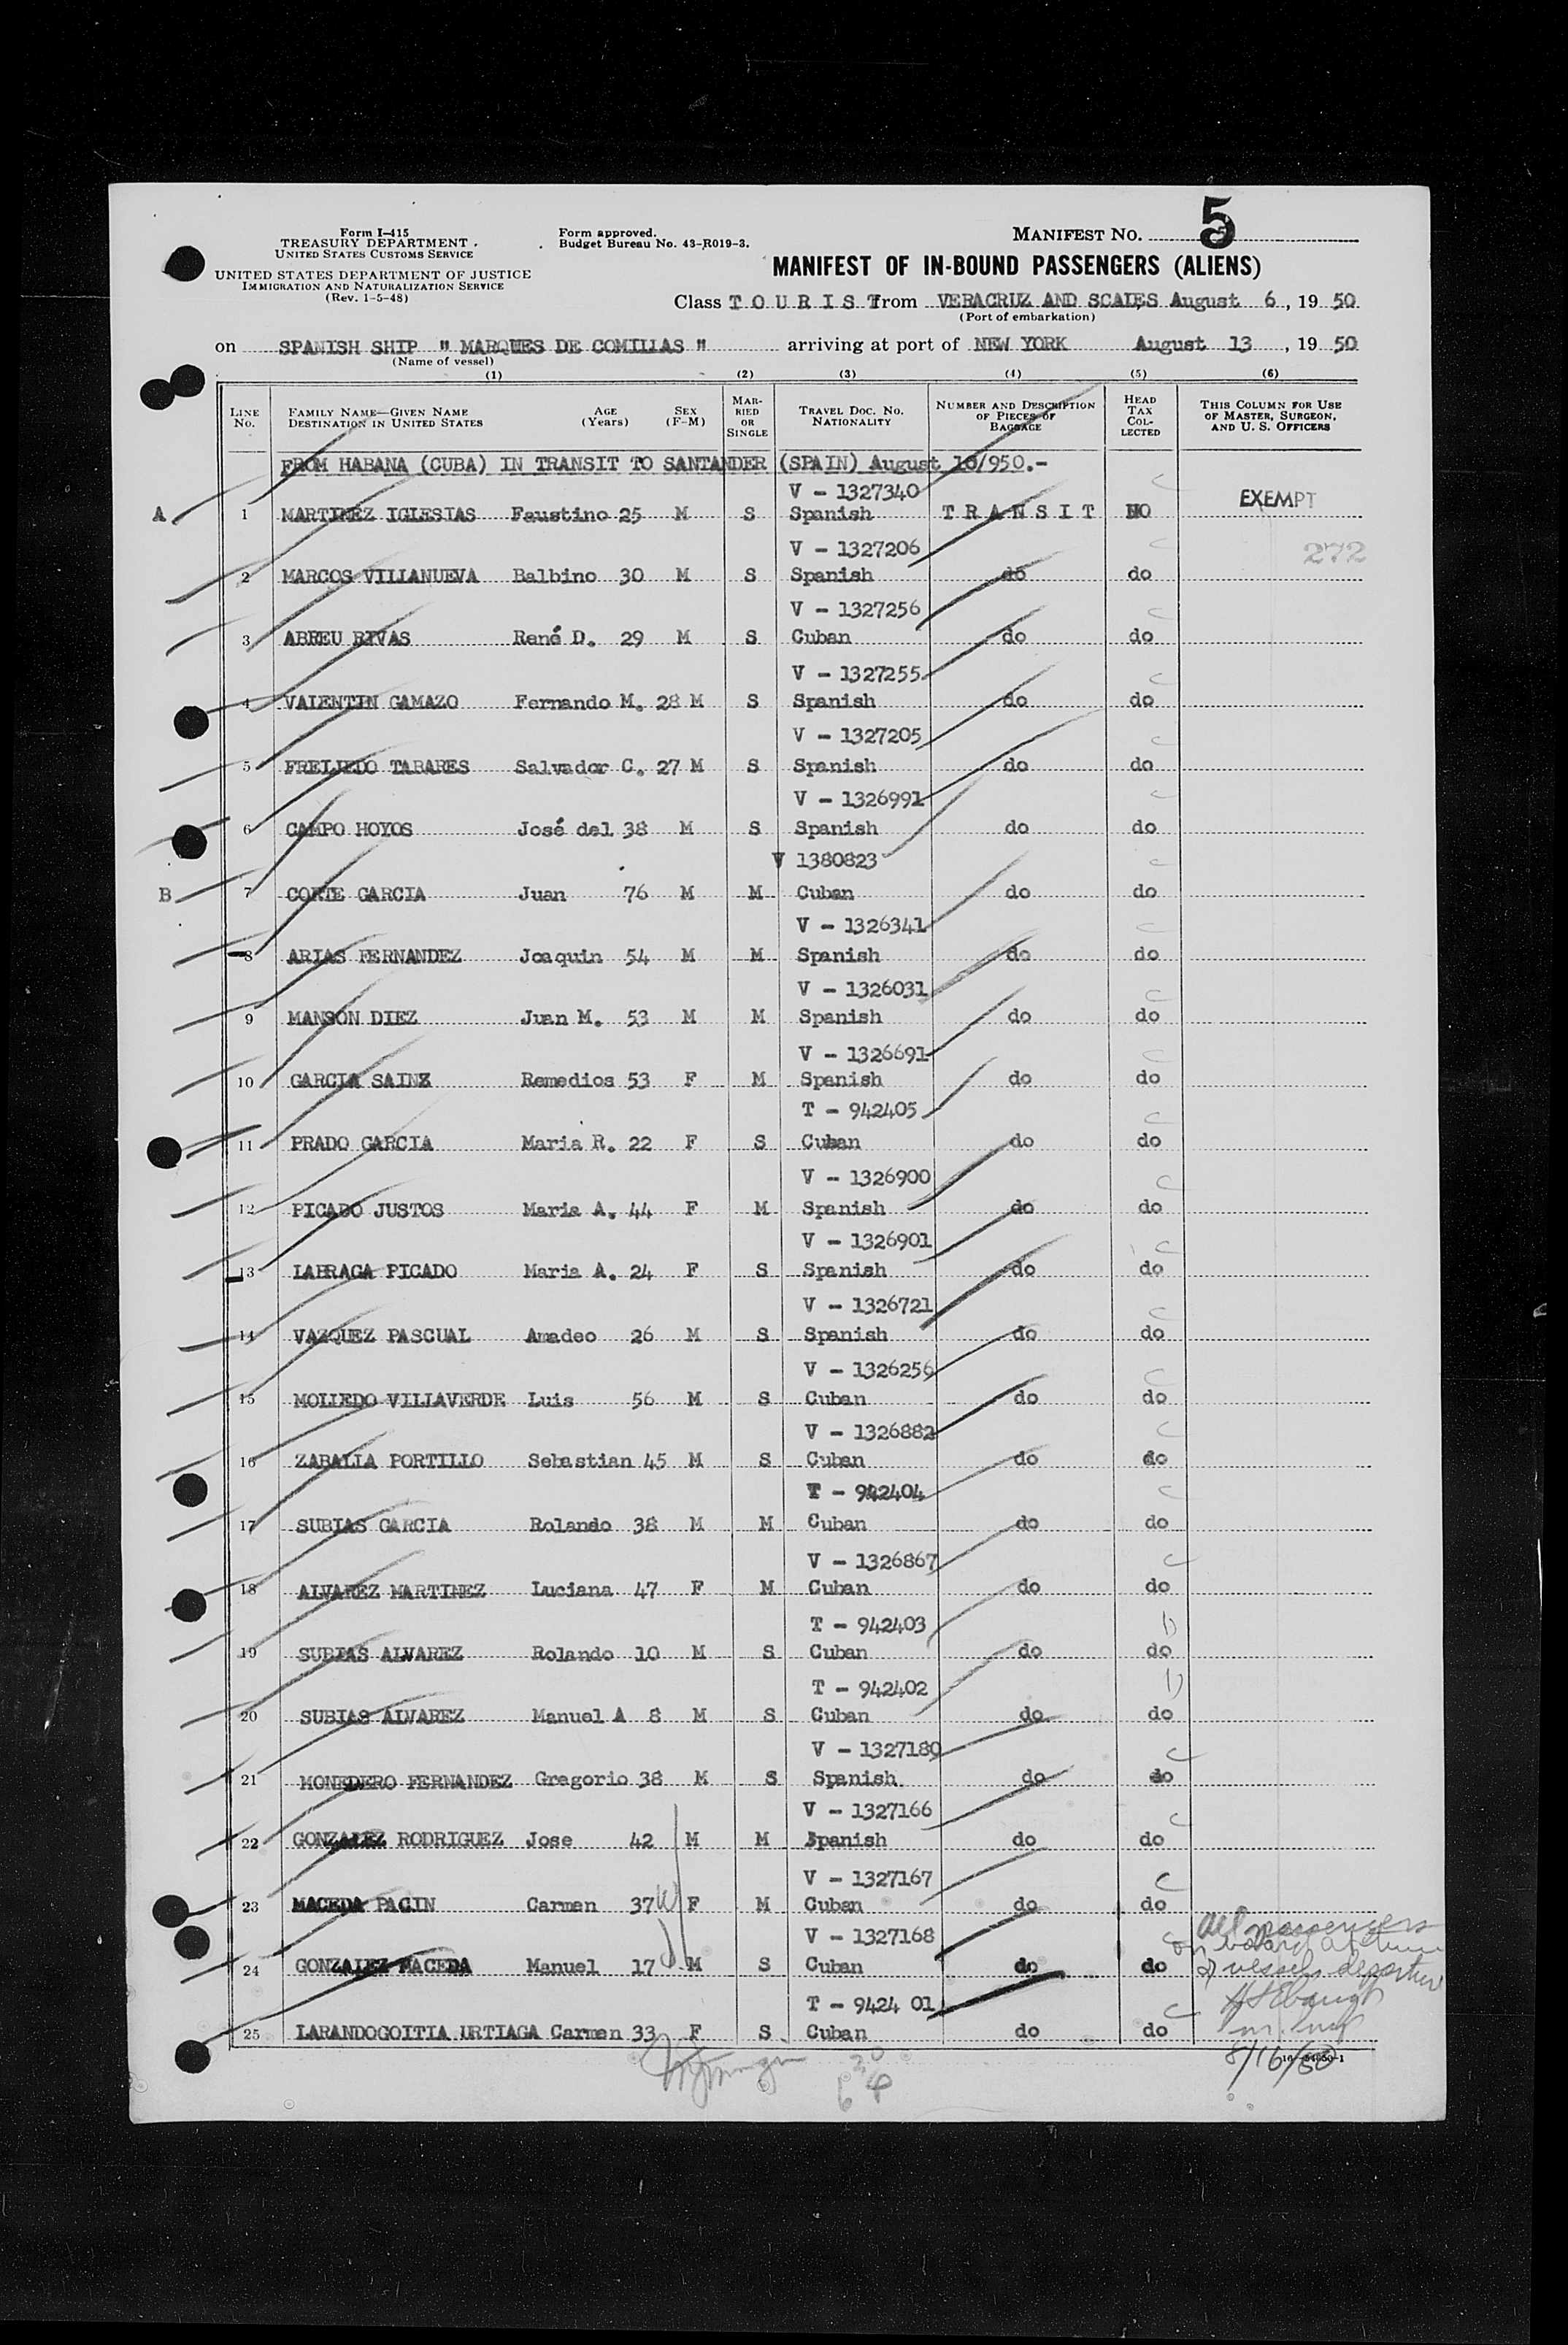 5
Form I-415
TREASURY DEPARTMENT
UNITED STATES CUSTOMS SERVICE
UNITED STATES DEPARTMENT OF JUSTICE
IMMIGRATION AND NATURALIZATION SERVICE
(Rev. 1-5-48)
Form approved.
Budget Bureau No. 43-R019-3.
MANIFEST NO.
MANIFEST OF IN-BOUND PASSENGERS (ALIENS)
Class T O U R I S T from VERACRUZ AND SCALES August 6, 19 50
(Port of embarkation)
on SPANISH SHIP " MARQUES DE COMILLAS " arriving at port of NEW YORK August 13, 19 50
(Name of vessel)
(1) (2) (3) (4) (5) (6)
LINE No. FAMILY NAME—GIVEN NAME DESTINATION IN UNITED STATES AGE (Years) SEX (F-M) MARRIED OR SINGLE TRAVEL DOC. NO. NATIONALITY NUMBER AND DESCRIPTION OF PIECES OF BAGGAGE HEAD TAX COLLECTED THIS COLUMN FOR USE OF MASTER, SURGEON, AND U. S. OFFICERS
FROM HABANA (CUBA) IN TRANSIT TO SANTANDER (SPAIN) August 10/950.-
V - 1327340
A 1 MARTINEZ IGLESIAS Faustino 25 M S Spanish T R A N S I T NO EXEMPT
V - 1327206 272
2 MARCOS VILLANUEVA Balbino 30 M S Spanish do do
V - 1327256
3 ABREU RIVAS René D. 29 M S Cuban do do
V - 1327255
4 VALENTIN GAMAZO Fernando M. 28 M S Spanish do do
V - 1327205
5 FREIJEDO TABARES Salvador C. 27 M S Spanish do do
V - 1326991
6 CAMPO HOYOS José del 38 M S Spanish do do
V 1380823
B 7 CORTE GARCIA Juan 76 M M Cuban do do
V - 1326341
8 ARIAS FERNANDEZ Joaquin 54 M M Spanish do do
V - 1326031
9 MANSON DIEZ Juan M. 53 M M Spanish do do
V - 1326691
10 GARCIA SAINZ Remedios 53 F M Spanish do do
T - 942405
11 PRADO GARCIA Maria R. 22 F S Cuban do do
V - 1326900
12 PICADO JUSTOS Maria A. 44 F M Spanish do do
V - 1326901
13 LABRAGA PICADO Maria A. 24 F S Spanish do do
V - 1326721
14 VAZQUEZ PASCUAL Amadeo 26 M S Spanish do do
V - 1326256
15 MOLLEDO VILLAVERDE Luis 56 M S Cuban do do
V - 1326882
16 ZABALLA PORTILLO Sebastian 45 M S Cuban do do
T - 942404
17 SUBIAS GARCIA Rolando 38 M M Cuban do do
V - 1326867
18 ALVAREZ MARTINEZ Luciana 47 F M Cuban do do
T - 942403
19 SUBIAS ALVAREZ Rolando 10 M S Cuban do do
T - 942402
20 SUBIAS ALVAREZ Manuel A 8 M S Cuban do do
V - 1327180
21 MONEDERO FERNANDEZ Gregorio 38 M S Spanish do do
V - 1327166
22 GONZALEZ RODRIGUEZ Jose 42 M M Spanish do do
V - 1327167
23 MACEDA PACIN Carmen 37 W F M Cuban do do
V - 1327168
24 GONZALEZ MACEDA Manuel 17 M S Cuban do do
T - 9424 01
25 LARANDOGOITIA URTIAGA Carmen 33 F S Cuban do do
All passengers
on board at time
of vessels departure
8/16/50